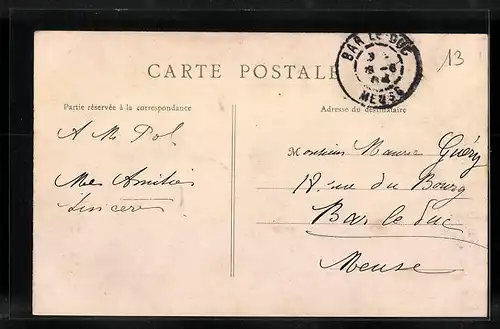 BAR LE DUC
MEUSE
13
CARTE POSTALE
Partie réservée à la correspondance
A M Pol
Mes Amitiés
Sincères
Adresse du destinataire
Monsieur Maurice Guéry
18, rue du Bourg
Bar le Duc
Meuse